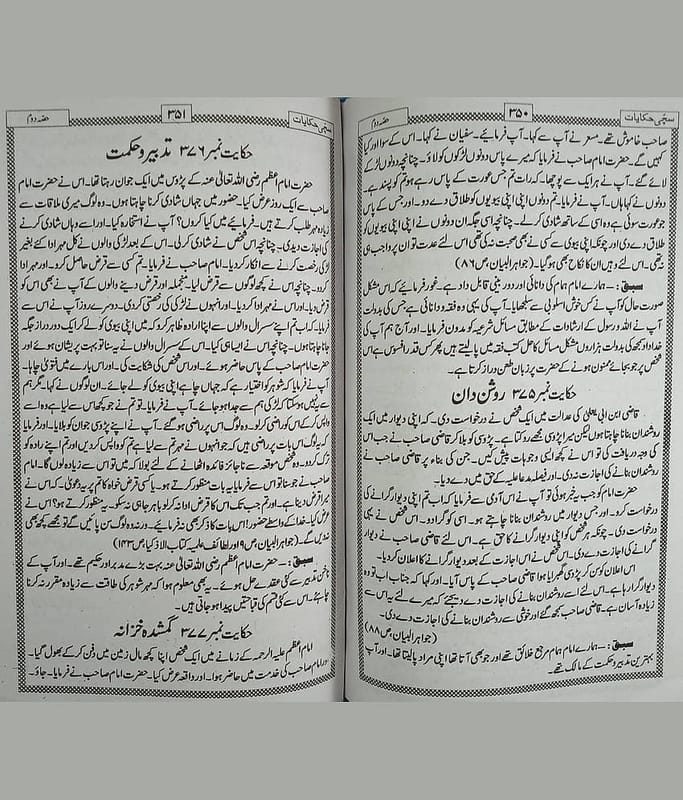 سچی حکایات ۳۵۰ حصہ دوم
صاحب خاموش تھے۔ مسعر نے آپ سے کہا۔ آپ فرمائیے۔ سفیان نے کہا۔ اس کے سوا اور کیا
کہیں گے۔ حضرت امام صاحب نے فرمایا کہ میرے پاس دونوں لڑکوں کو لاؤ۔ چنانچہ دونوں لڑکے
لائے گئے۔ آپ نے ہر ایک سے پوچھا۔ کہ رات تم جس عورت کے پاس رہے ہو تم کو پسند ہے۔
دونوں نے کہا ہاں۔ آپ نے فرمایا۔ تم دونوں اپنی اپنی بیویوں کو طلاق دے دو۔ اور جس کے پاس
جو عورت سوئی ہے وہ اسی کے ساتھ شادی کرلے۔ چنانچہ اسی جگہ ان دونوں نے اپنی اپنی بیویوں کو
طلاق دے دی اور چونکہ اپنی بیوی سے کسی نے بھی صحبت نہ کی تھی اس لئے عدت تو ان پر واجب ہی
نہ تھی۔ اس لئے وہیں ان کا نکاح بھی ہوگیا۔ (جواہر البیان ص ۸۶)
سبق:۔ ہمارے امام ہمام کی دانائی اور دور بینی قابل داد ہے۔ غور فرمائیے کہ اس مشکل
صورت حال کو آپ نے کس خوش اسلوبی سے سلجھایا۔ آپ کی یہی وہ فقہ و دانائی ہے جس کی بدولت
آپ نے اللہ و رسول کے ارشادات کے مطابق مسائل شرعیہ کو مدون فرمایا۔ اور آج ہم آپ کی
خداداد سمجھ کی بدولت ہزاروں مشکل مسائل کا حل کتب فقہ میں پا لیتے ہیں پھر کس قدر افسوس ہے اس
شخص پر جو بجائے ممنون ہونے کے حضرت پر زبان طعن دراز کرتا ہے۔
حکایت نمبر ۳۷۵ روشن دان
قاضی ابن ابی یعلیٰ کی عدالت میں ایک شخص نے درخواست دی۔ کہ اپنی دیوار میں ایک
روشندان بنانا چاہتا ہوں لیکن میرا پڑوسی مجھے روکتا ہے۔ پڑوسی کو بلا کر قاضی صاحب نے جب اس
کی وجہ دریافت کی تو اس نے کچھ ایسی وجوہات پیش کیں۔ جن کی بناء پر قاضی صاحب نے
روشندان بنانے کی اجازت نہ دی۔ اور فیصلہ مدعا علیہ کے حق میں دے دیا۔
حضرت امام کو جب یہ خبر ہوئی تو آپ نے اس آدمی سے فرمایا کہ اب تم اپنی دیوار گرانے کی
درخواست کرو۔ اور جس دیوار میں روشندان بنانا چاہتے ہو۔ اسی کو گرا دو۔ اس شخص نے یہی
درخواست دی۔ چونکہ ہر شخص کو اپنی دیوار گرانے کا حق ہے۔ اس لئے قاضی صاحب نے دیوار
گرانے کی اجازت دے دی۔ اس شخص نے اس اجازت کے بعد دیوار گرانے کا اعلان کردیا۔
اس اعلان کو سن کر پڑوسی گھبرایا ہوا قاضی صاحب کے پاس آیا۔ اور کہا کہ جناب اب تو وہ
دیوار گرا رہا ہے۔ اس لئے اسے روشندان بنانے کی اجازت دے دیجئے کہ میرے لئے یہ اس سے
زیادہ آسان ہے۔ قاضی صاحب سمجھ گئے اور خوشی سے روشندان بنانے کی اجازت دے دی۔
(جواہر البیان ص ۸۸)
سبق:۔ ہمارے امام ہمام مرجع خلائق تھے اور جو بھی آتا تھا اپنی مراد پا لیتا تھا۔ اور آپ
بہترین تدبیر و حکمت کے مالک تھے۔
سچی حکایات ۳۵۱ حصہ دوم
حکایت نمبر ۳۷۶ تدبیر و حکمت
حضرت امام اعظم رضی اللہ تعالیٰ عنہ کے پڑوس میں ایک جوان رہتا تھا۔ اس نے حضرت امام
صاحب سے ایک روز عرض کیا۔ حضور میں جہاں شادی کرنا چاہتا ہوں۔ وہ لوگ میری طاقت سے
زیادہ مہر طلب کرتے ہیں۔ فرمائیے میں کیا کروں؟ آپ نے استخارہ کیا۔ اور اسے وہاں شادی کرنے
کی اجازت دیدی۔ چنانچہ اس شخص نے شادی کرلی۔ اس کے بعد لڑکی والوں نے کل مہر ادا کئے بغیر
لڑکی رخصت کرنے سے انکار کردیا۔ امام صاحب نے فرمایا۔ تم کسی سے قرض حاصل کرو۔ اور مہر ادا
کردو۔ چنانچہ اس نے کچھ لوگوں سے قرض لیا۔ منجملہ اور قرض دینے والوں کے آپ نے بھی اس کو
قرض دیا۔ اور اس نے مہر ادا کردیا۔ اور انہوں نے لڑکی کی رخصتی کردی۔ دوسرے روز آپ نے اس سے
فرمایا۔ کہ اب تم اپنے سسرال والوں سے اپنا ارادہ ظاہر کرو کہ میں اپنی بیوی کو لے کر ایک دور دراز جگہ
جانا چاہتا ہوں۔ چنانچہ اس نے ایسا ہی کیا۔ اس کے سسرال والوں نے یہ سنا تو بہت پریشان ہوئے اور
حضرت امام صاحب کے پاس حاضر ہوئے۔ اور اس شخص کی شکایت کی۔ اور اس بارے میں فتویٰ چاہا۔
آپ نے فرمایا کہ شوہر کو اختیار ہے کہ جہاں چاہے اپنی بیوی کو لے جائے۔ ان لوگوں نے کہا۔ مگر ہم
سے یہ نہیں ہوسکتا کہ لڑکی ہم سے جدا ہو جائے۔ آپ نے فرمایا۔ تو تم نے جو کچھ اس سے لیا ہے وہ اسے
واپس کرکے اس کو راضی کرلو۔ وہ لوگ اس پر راضی ہوگئے۔ آپ نے اپنے پڑوسی جوان کو بلایا۔ اور فرمایا
کہ یہ لوگ اس بات پر راضی ہیں کہ جو انہوں نے مہر تم سے لیا ہے تم کو واپس کردیں اور تم اپنے ارادہ کو
ترک کردو۔ وہ شخص موقعہ سے ناجائز فائدہ اٹھانے کے لئے بولا کہ میں تو اس سے زیادہ لوں گا۔ امام
صاحب نے جو سنا تو اس سے فرمایا یہ بات منظور کرتے ہو۔ یا کسی قرض خواہ کا تم پر یہ دعویٰ کہ اس نے
میرا قرض دینا ہے۔ اور تم جب تک اس کا قرض ادا نہ کرلو باہر جا ہی نہ سکو۔ یہ منظور کرتے ہو؟ اس نے
عرض کیا۔ خدا کے واسطے حضور! اس بات کا ذکر بھی نہ فرمائیے۔ ورنہ وہ لوگ سن پائیں گے تو مجھے کچھ بھی
نہ دیں گے۔ (جواہر البیان ص ۹ اور لطائف علمیہ کتاب الاذکیا ص ۱۴۳)
سبق:۔ حضرت امام اعظم رضی اللہ تعالیٰ عنہ بہت بڑے مدبر اور حکیم تھے۔ اور آپ کے
ناخن تدبیر سے کئی عقدے حل ہوئے۔ یہ بھی معلوم ہوا کہ مہر شوہر کی طاقت سے زیادہ مقرر نہ کرنا
چاہئے۔ اس سے کئی قسم کی قباحتیں پیدا ہو جاتی ہیں۔
حکایت نمبر ۳۷۷ گمشدہ خزانہ
امام اعظم علیہ الرحمہ کے زمانے میں ایک شخص اپنا کچھ مال زمین میں دفن کرکے بھول گیا۔
اور امام صاحب کی خدمت میں حاضر ہوا۔ اور واقعہ عرض کیا۔ حضرت امام صاحب نے فرمایا۔ جاؤ۔